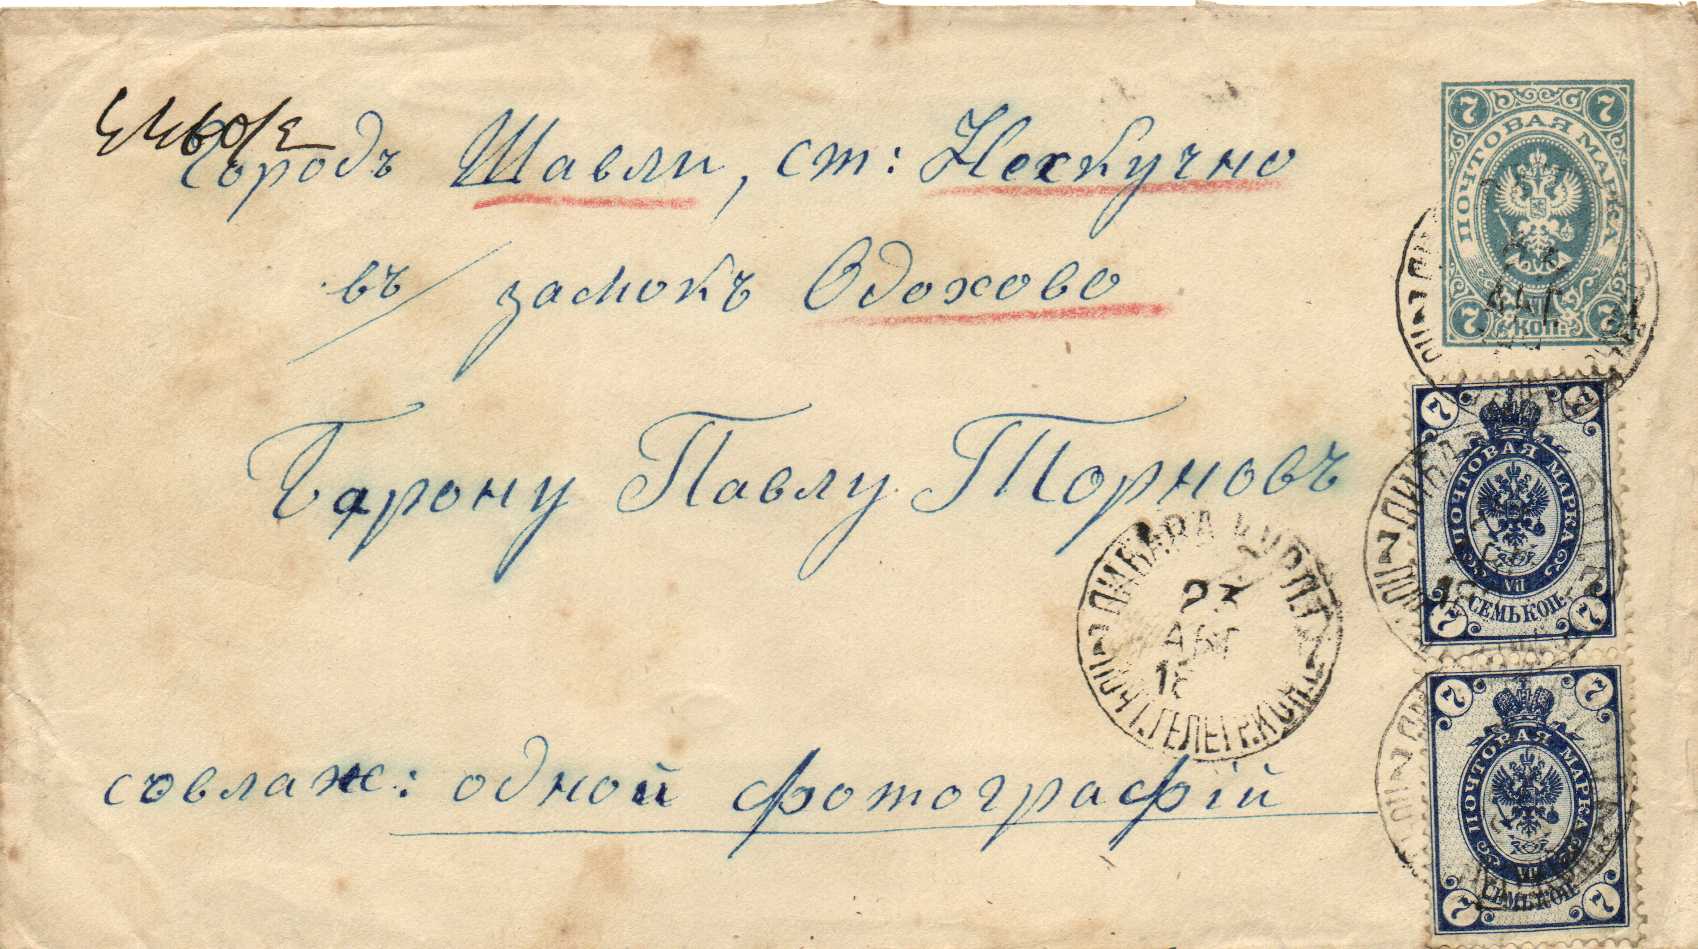 Городъ Шавли, ст: Нескучно
въ замокъ Одохово
Барону Павлу Торновъ
съвлаж: одной фотографій
7 7
ПОЧТОВАЯ МАРКА
7 КОП. 7
7 7
ПОЧТОВАЯ МАРКА
VII
СЕМЬ КОП.
7 7
7 7
ПОЧТОВАЯ МАРКА
VII
СЕМЬ КОП.
7 7
ЛИБАВА КУРЛ.
23
АВГ
18
ПОЧТ. ТЕЛЕГР. КОН.